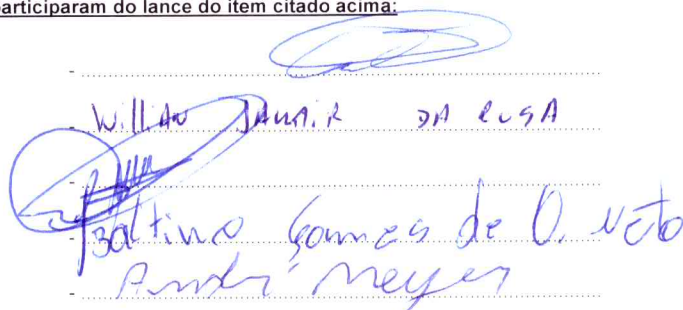 participaram do lance do item citado acima:
Willian DA ROSA
Gomes de O. Neto
André Meyer